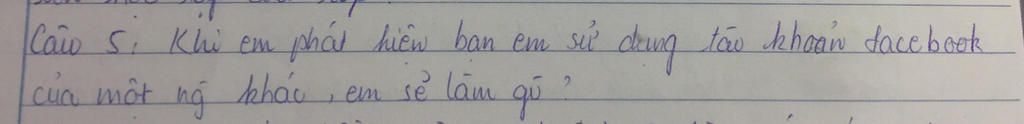 Câu 5: Khi em phát hiện bạn em sử dụng tào khoản facebook
của một ng̃ khác, em sẽ làm gì?